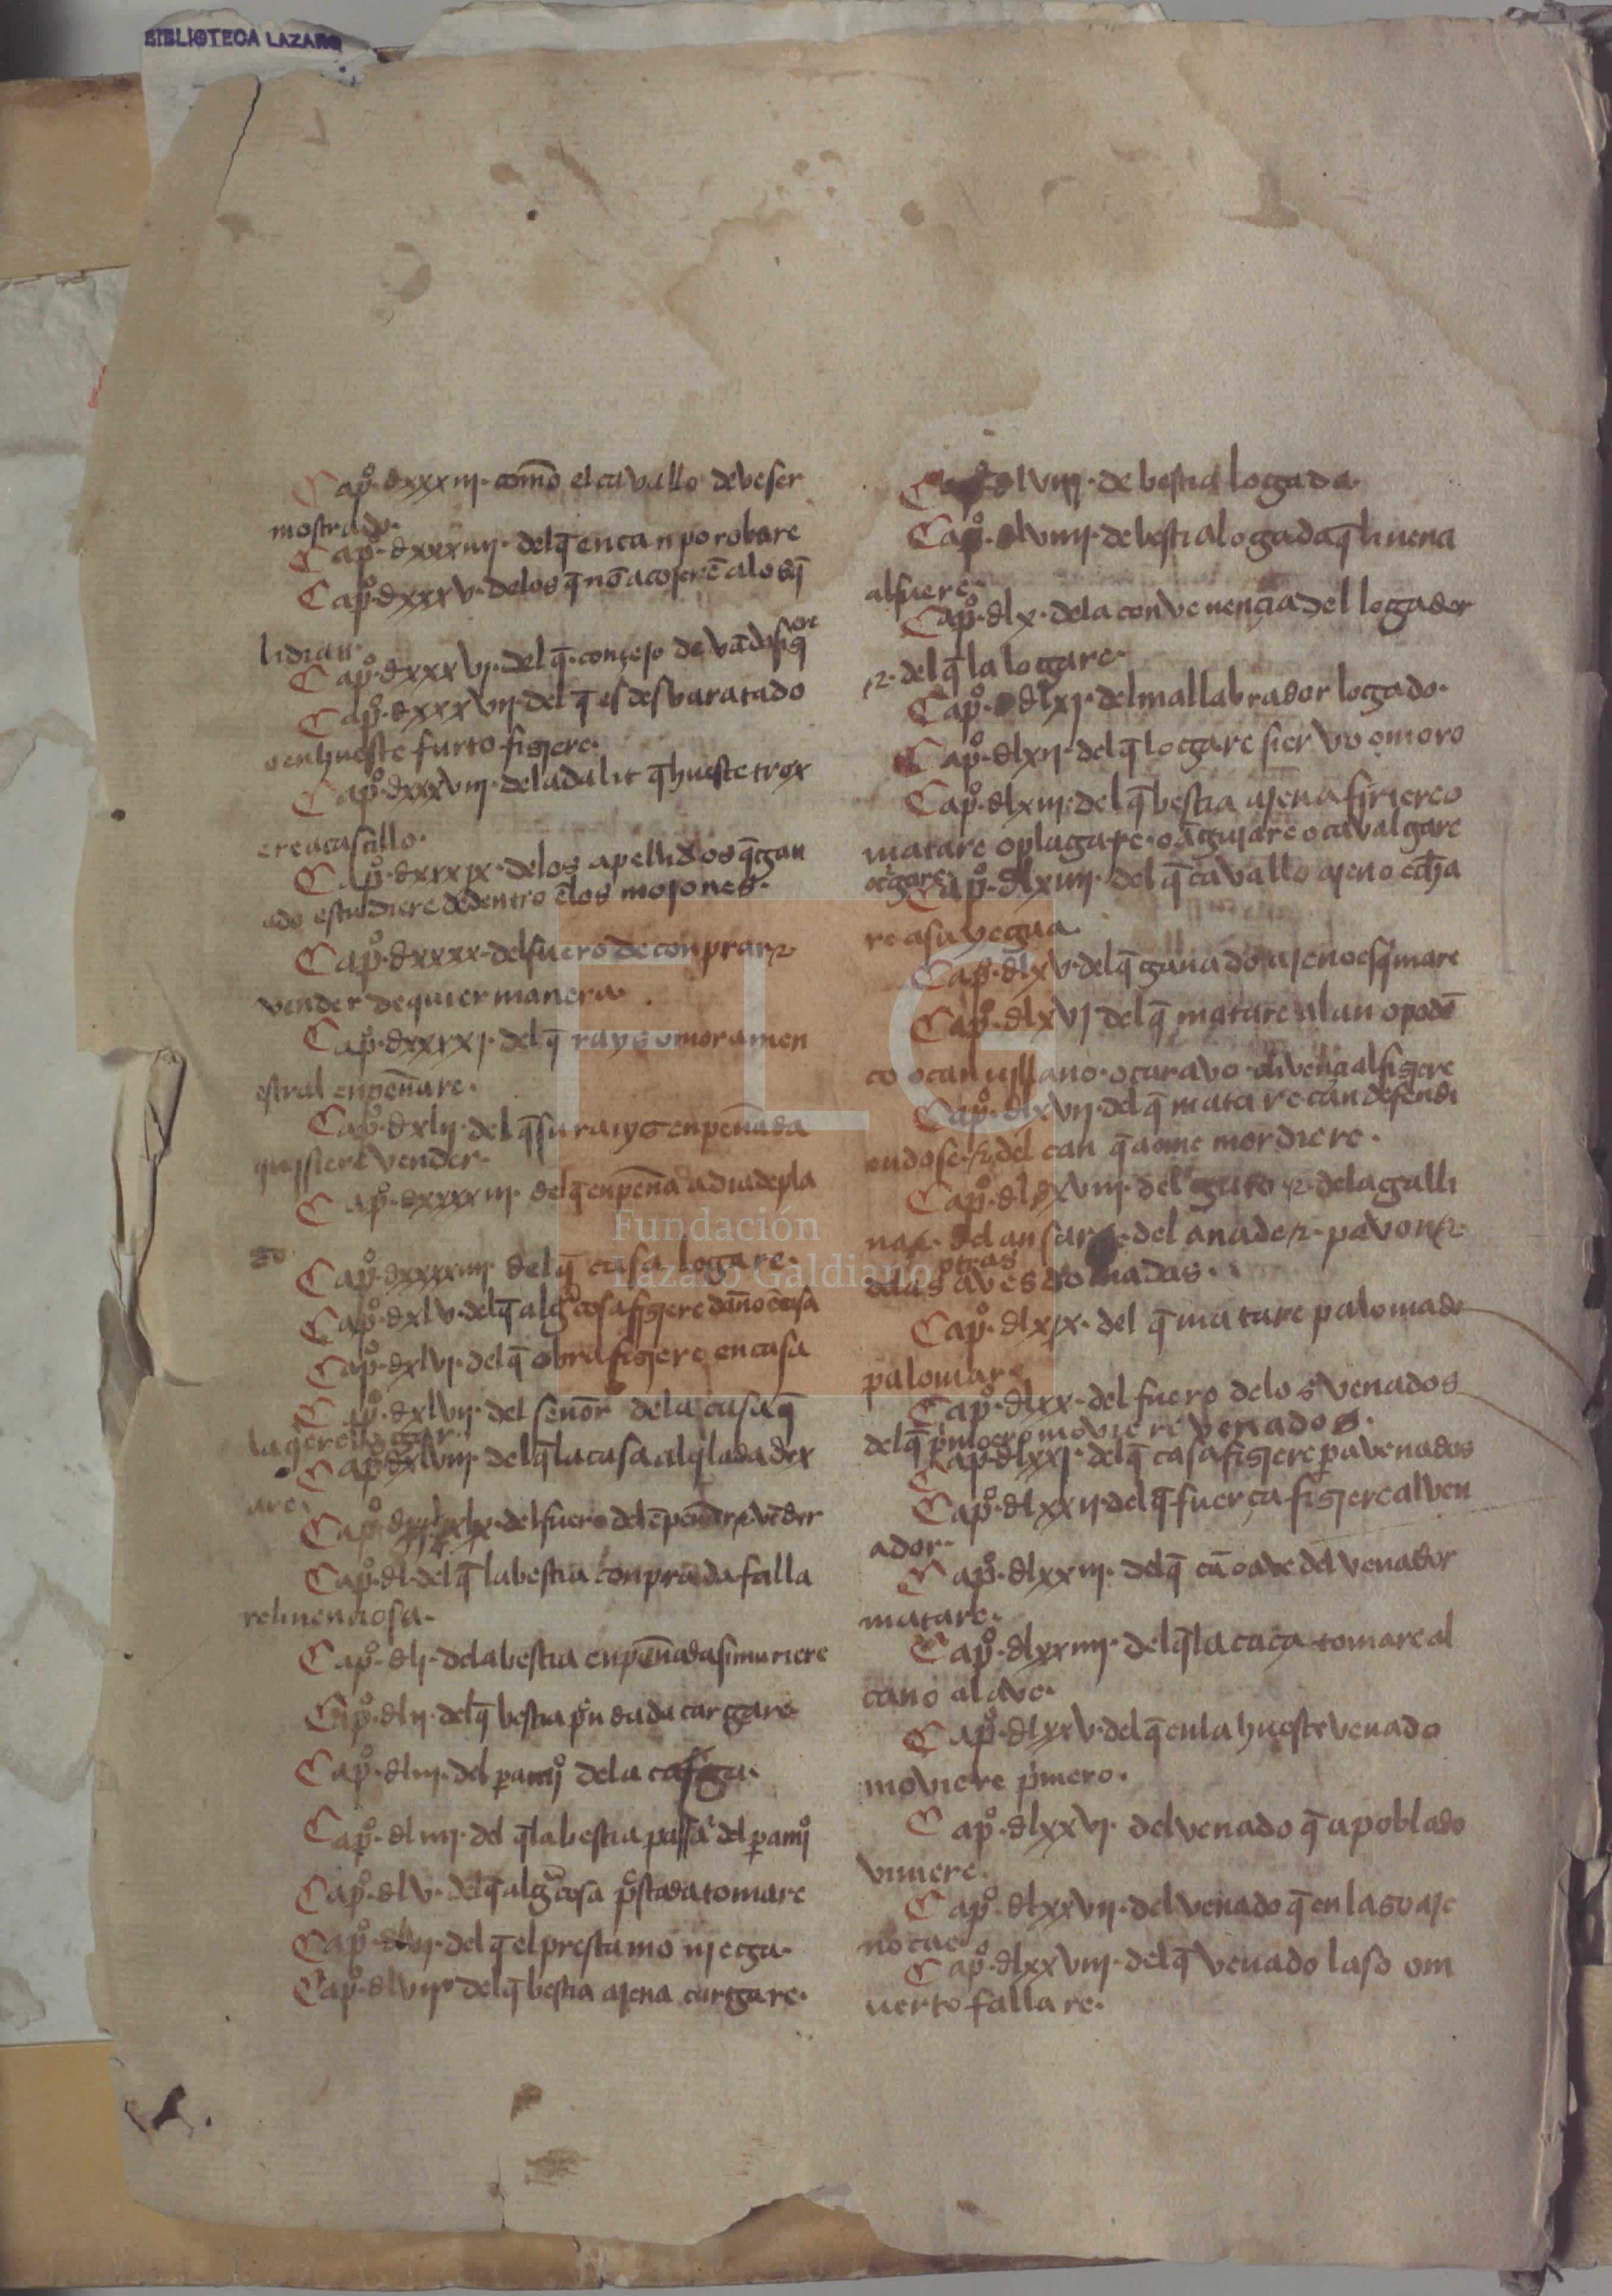 BIBLIOTECA LAZARO
Capº. dxxxiij. como el cavallo deve ser
mostrado.
Capº. dxxxiiij. del q̄ en can po robare
Capº. dxxxv. delos q̄ nō acojerē alos q̄
lidian.
Capº. dxxxvj. del q̄ conçejo de vādo siḡ
ere
Capº. dxxxvij. del q̄ es desvaratado
o en hueste furto fiziere.
Capº. dxxxviij. del adalit q̄ hueste trox
ere a castillo.
Capº. dxxxjx. delos apellidos q̄ gan
ado estudiere dedentro ēlos mojones.
Capº. dxxxx. del fuero de conprar ⁊
vender de quier manera.
Capº. dxxxxj. del q̄ rayz o moramen
estral enpeñare.
Capº. dxlij. del q̄ su raiyz enpeñada
quisiere vender.
Capº. dxxxxiij. del q̄ enpeña a dia de pla
zo
Capº. dxxxxiiij. del q̄ casa logare.
Capº. dxlv. del q̄ alḡ cosa fiziere daño ē casa
Capº. dxlvj. del q̄ obra fiziere en casa
Capº. dxlvij. del señor dela casa q̄
Capº. dxlviij. del q̄ la casa alq̄lada dex
are.
Capº. del fuero del ēpeñar ⁊ vēder
Capº. dl. del q̄ la bestia conprada falla
re linenciosa.
Capº. dlj. dela bestia enpeñada si muriere
Capº. dlij. del q̄ bestia p̄ndada cargare.
Capº. dliij. del dela carga.
Capº. dliiij. del q̄ la bestia del
Capº. dlv. del q̄ alḡ cosa p̄stada tomare
Capº. dlvj. del q̄ el prestamo njega.
Capº. dlvij. del q̄ bestia ajena cargare.
Capº. dlviij. de bestia logada.
Capº. dlviiij. de bestia logada q̄ linenci
al fuere.
Capº. dlx. dela convenençia del logador
⁊ del q̄ la logare.
Capº. dlxj. del mal labrador logado.
Capº. dlxij. del q̄ logare siervo o moro
Capº. dlxiij. del q̄ bestia ajena firiere o
matare o plagare o āguijare o cavalgare
o cārgare
Capº. dlxiiij. del q̄ cavallo ajeno echa
re a su yegua.
Capº. dlxv. del q̄ ganado ajeno esq̄mare
Capº. dlxvj. del q̄ matare alan o podē
co o can
Capº. dlxvij. del q̄ matare can defendi
endose. ⁊ del can q̄ a ome mordiere.
Capº. dlxviij. del gato ⁊ dela galli
na ⁊. del ansar ⁊ del anade ⁊. pavon ⁊
otras
delas aves domadas.
Capº. dlxjx. del q̄ matare paloma de
palomar
Capº. dlxx. del fuero delos venados
del q̄ p̄mero moviere venados.
Capº. dlxxj. del q̄ casa fiziere pa venados
Capº. dlxxij. del q̄ fuerça fiziere al ven
ador.
Capº. dlxxiij. del q̄ cā o ave del venador
matare.
Capº. dlxxiiij. del q̄ la caça tomare al
can o al ave.
Capº. dlxxv. del q̄ en la hueste venado
moviere p̄mero.
Capº. dlxxvj. del venado q̄ a poblado
viniere.
Capº. dlxxvij. del venado q̄ en lazo aje
no cae.
Capº. dlxxviij. del q̄ venado laso o m
uerto fallare.
FLG
Fundación
Lázaro Galdiano